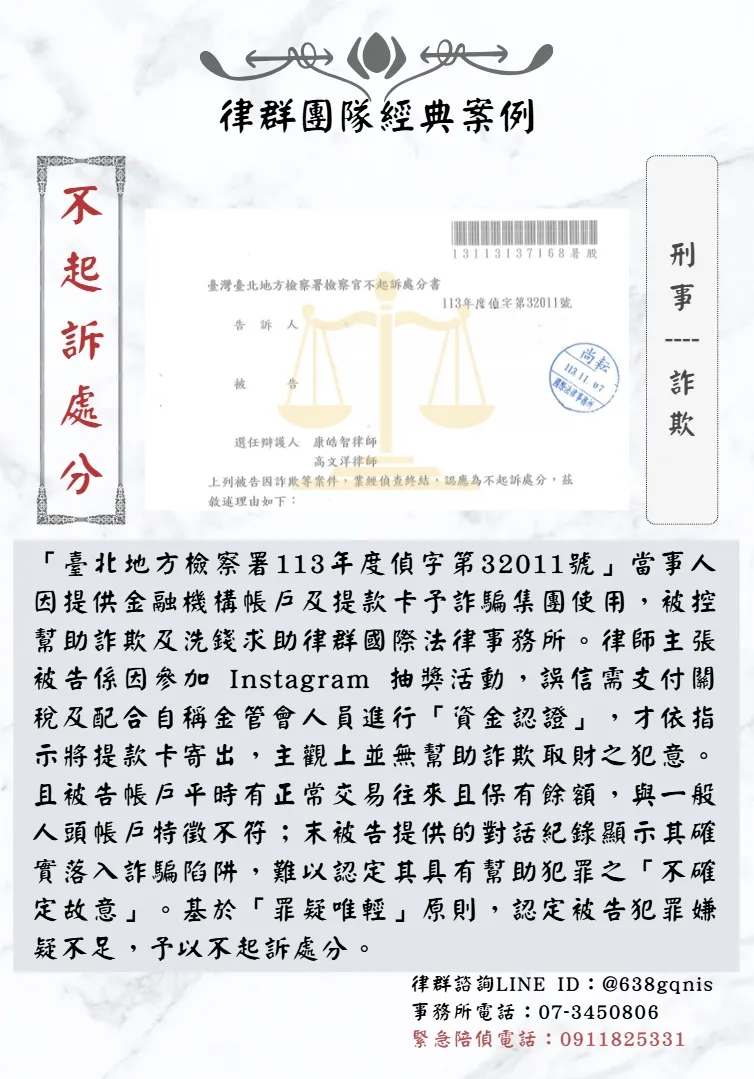 律群團隊經典案例
不起訴處分
刑事----詐欺
13113137168暑股
臺灣臺北地方檢察署檢察官不起訴處分書
113年度偵字第32011號
告訴人
被告
尚耘
113.11.07
國際法律事務所
選任辯護人 康皓智律師
高文洋律師
上列被告因詐欺等案件,業經偵查終結,認應為不起訴處分,茲
敘述理由如下:
「臺北地方檢察署113年度偵字第32011號」當事人
因提供金融機構帳戶及提款卡予詐騙集團使用,被控
幫助詐欺及洗錢求助律群國際法律事務所。律師主張
被告係因參加 Instagram 抽獎活動,誤信需支付關
稅及配合自稱金管會人員進行「資金認證」,才依指
示將提款卡寄出,主觀上並無幫助詐欺取財之犯意。
且被告帳戶平時有正常交易往來且保有餘額,與一般
人頭帳戶特徵不符;末被告提供的對話紀錄顯示其確
實落入詐騙陷阱,難以認定其具有幫助犯罪之「不確
定故意」。基於「罪疑唯輕」原則,認定被告犯罪嫌
疑不足,予以不起訴處分。
律群諮詢LINE ID:@638gqnis
事務所電話:07-3450806
緊急陪偵電話:0911825331